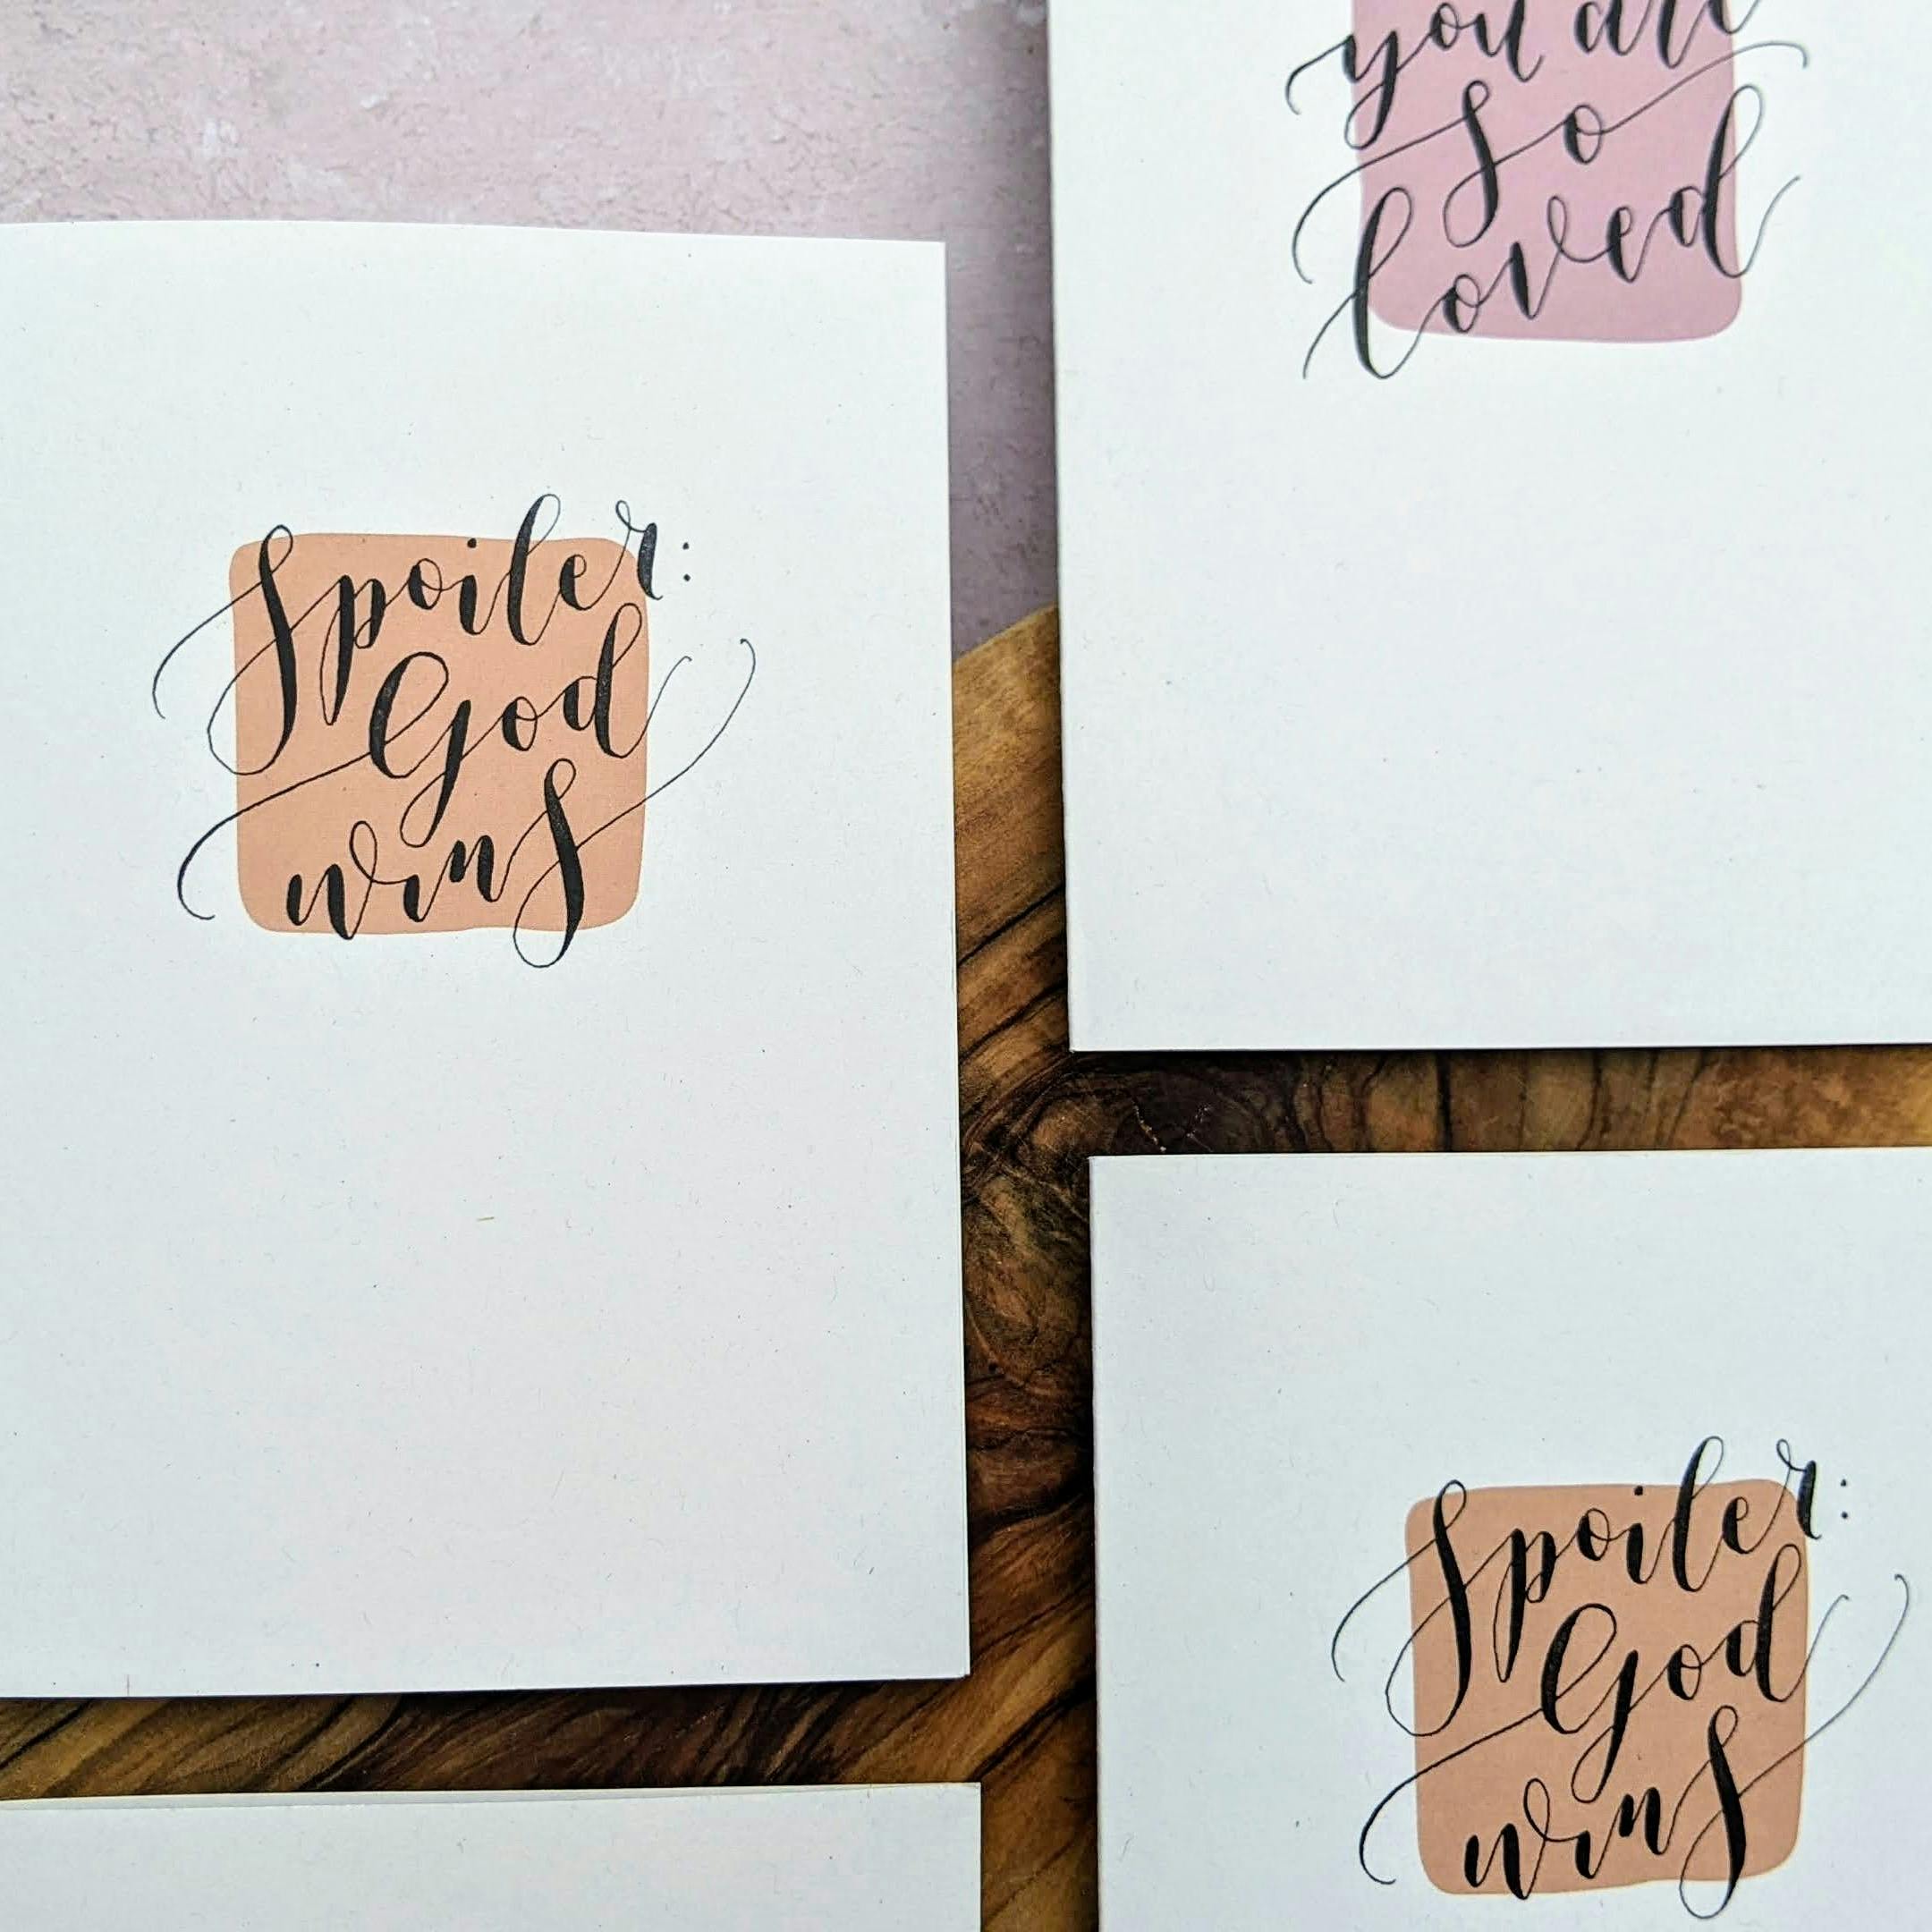 Spoiler:
God
wins
you are
so
loved
Spoiler:
God
wins